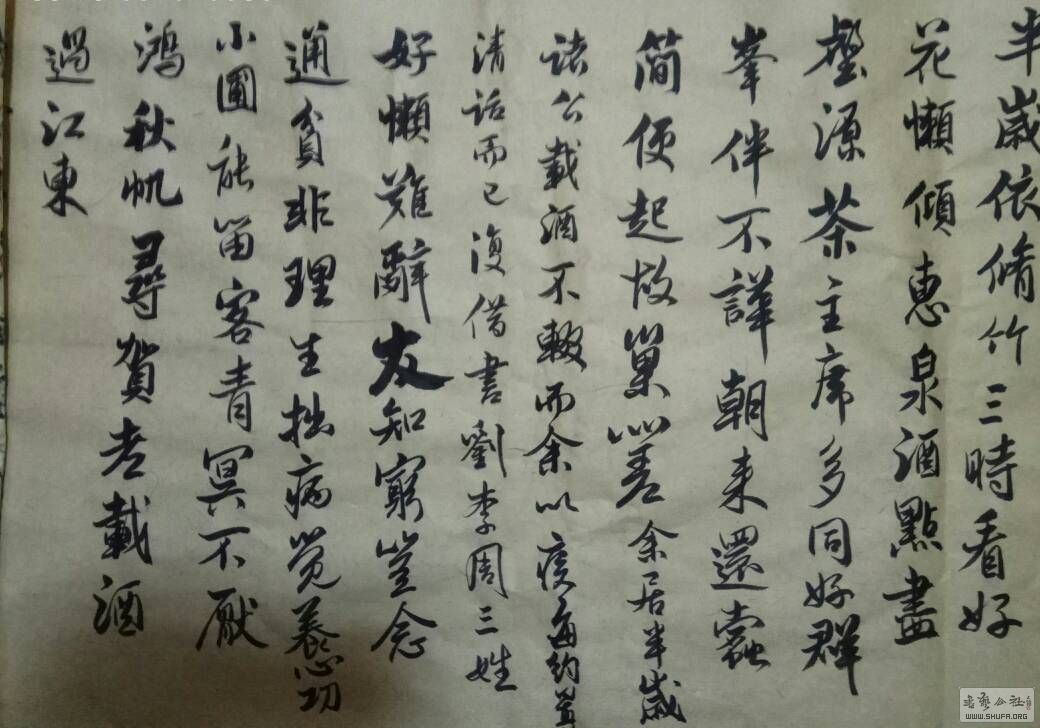 半歲依脩竹三時看好
花懶傾惠泉酒點盡
壑源茶主席多同好群
峯伴不譁朝来還蠹
簡便起故巢嗟余居半歲
諸公載酒不輟而余以疾每約置
清話而已復借書劉李周三姓
好懶難辭友知窮豈念
通貧非理生拙病覺養心功
小圃能留客青冥不厭
鴻秋帆尋賀老載酒
過江東
書藝公社
WWW.SHUFA.ORG